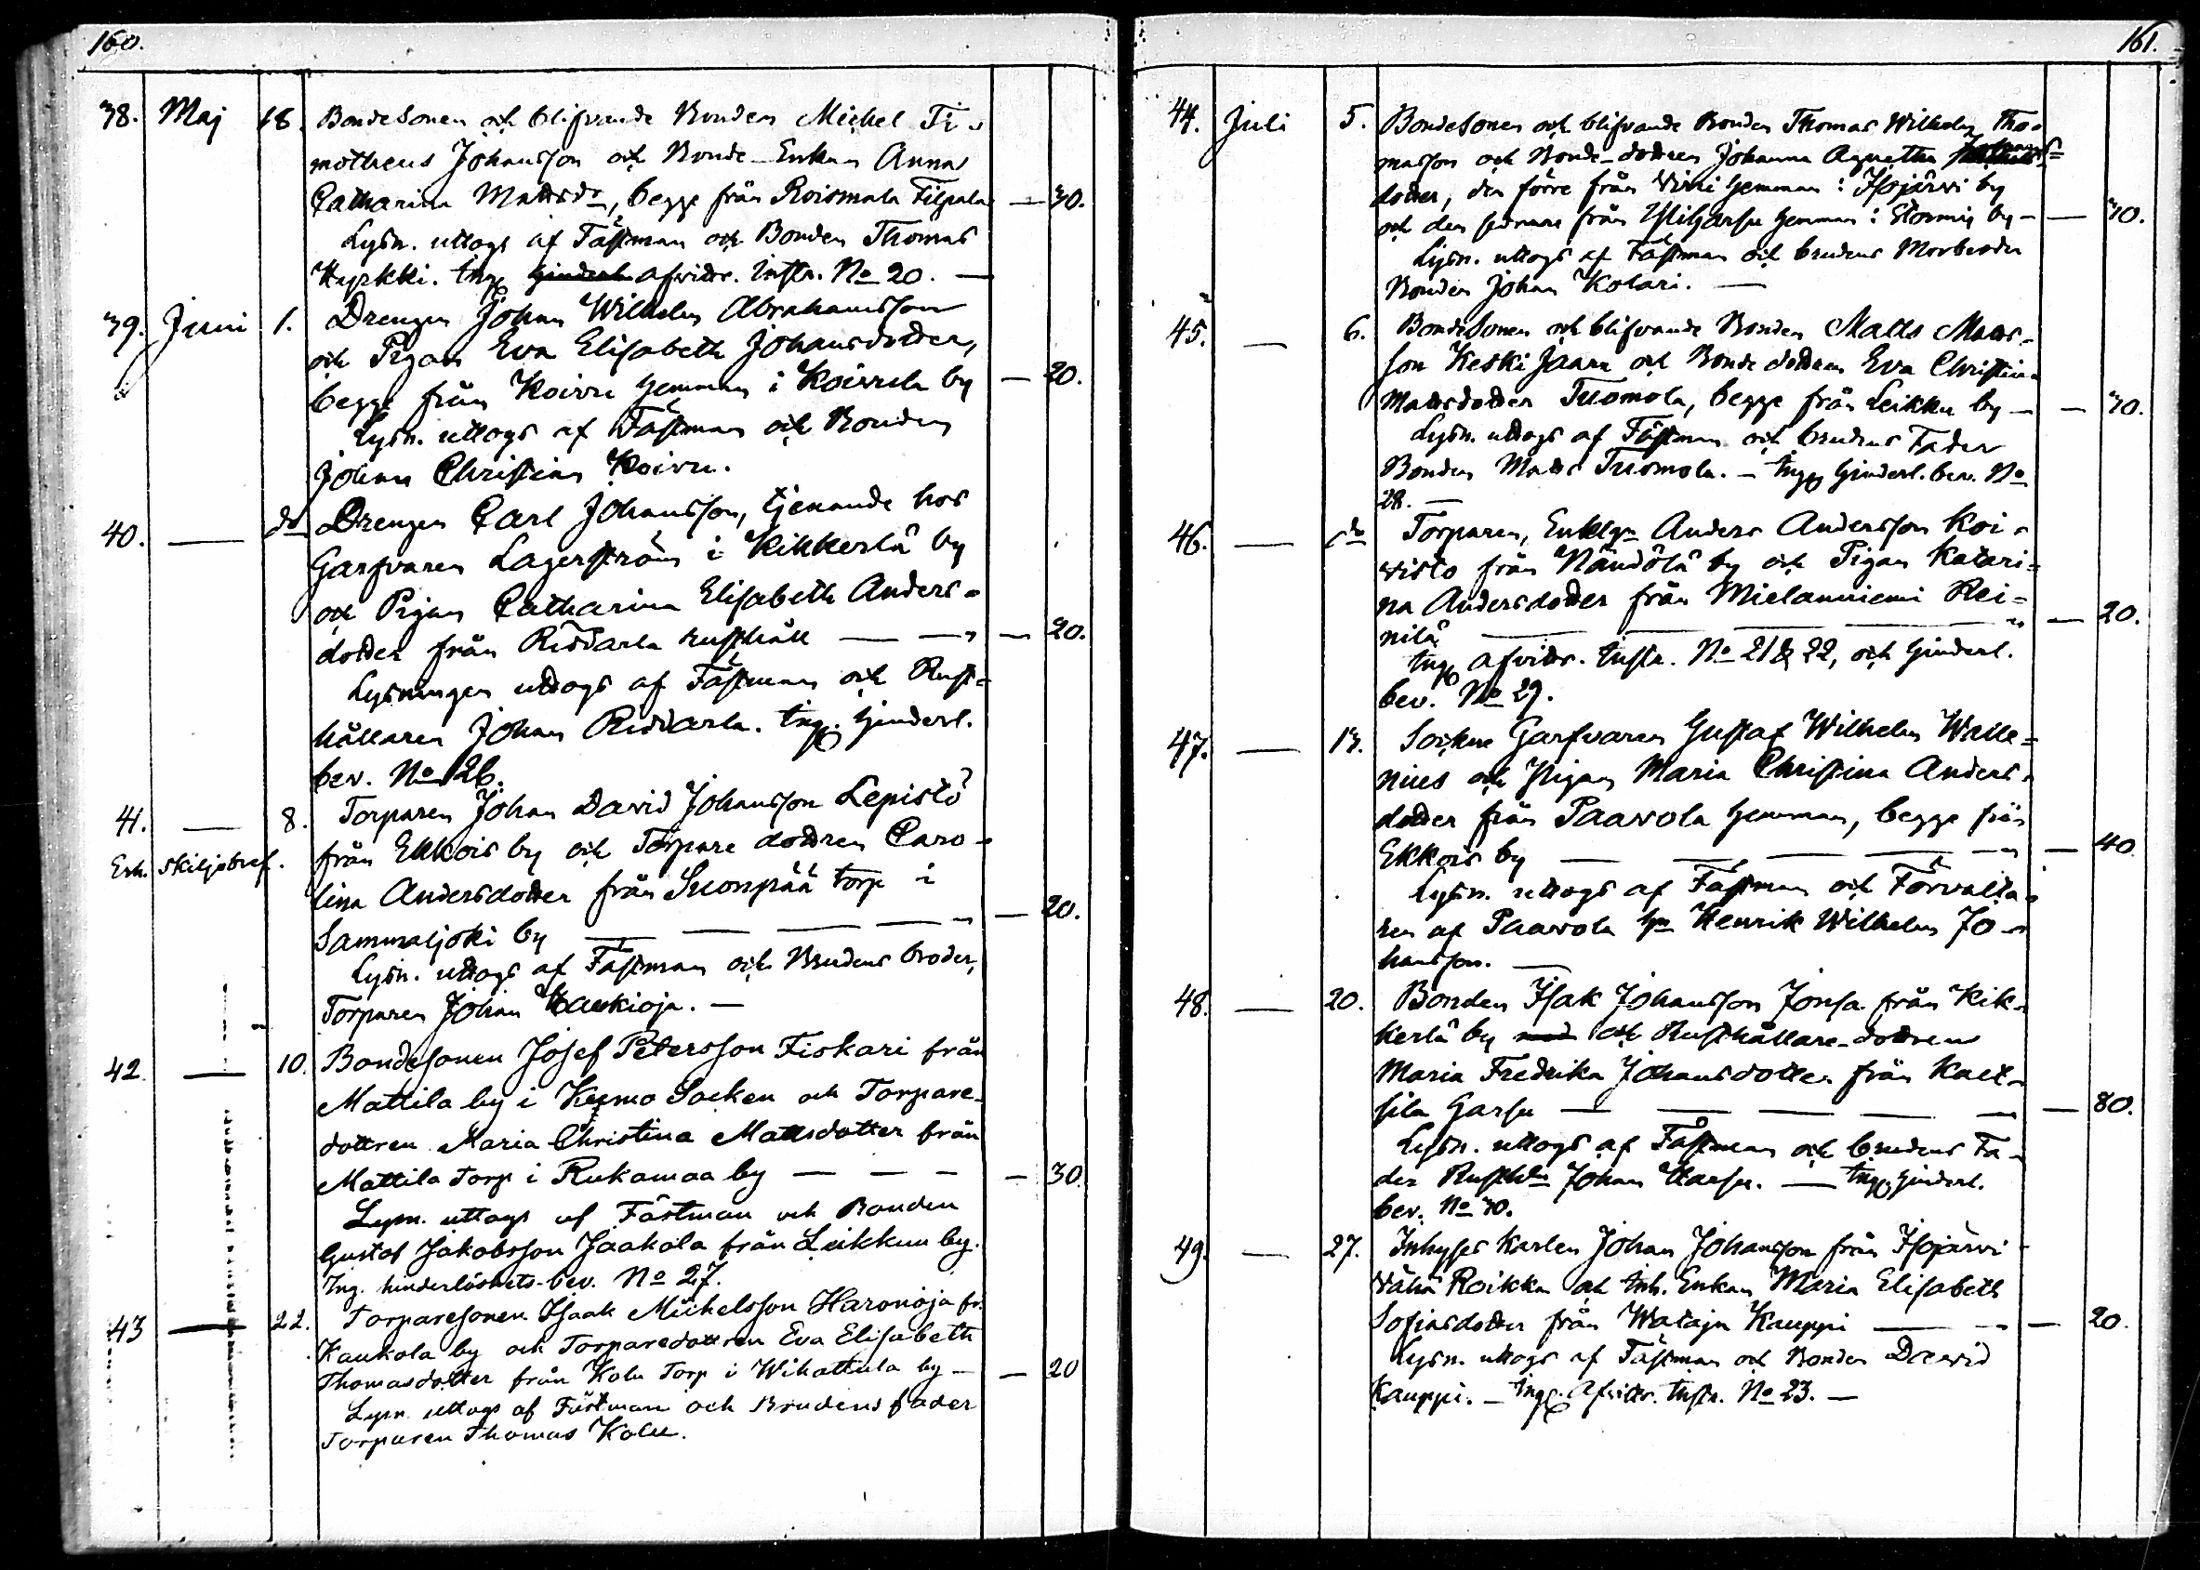 160.
38. Maj 18. Bondesonen och blifvande Bonden Michel Ti-
motheus Johansson och Bonde-Enkan Anna
Catharina Mattsdr, begge från Roismala Filpala — 30.
Lysn. uttogs af Fästman och Bonden Thomas
Kyrkki. Ing. afvittr. instr. No 20. —
39. Juni 1. Drengen Johan Wilhelm Abrahamsson
och Pigan Eva Elisabeth Johansdotter,
begge från Koivu hemman i Koivula by — 20.
Lysn. uttogs af Fästman och Bonden
Johan Christian Koivu.
40. — do Drengen Carl Johansson, tjenande hos
Garfvaren Lagerström i Kikkerlä by
och Pigan Catharina Elisabeth Anders-
dotter från Riddarla rusthåll — — — 20.
Lysningen uttogs af Fästman och Rust-
hållaren Johan Riddarla. Ing. hinderl.
bev. No 26.
41. — 8. Torparen Johan David Johansson Lepistö
Erh. skiljobref. från Ekkois by och Torpare dottren Caro-
lina Andersdotter från Suonpää torp i
Sammaljoki by — — — — — 20.
Lysn. uttogs af Fästman och Brudens broder,
Torparen Johan Haukioja. —
42. — 10. Bondesonen Josef Petersson Fiskari från
Mattila by i Keymo Socken och Torpare-
dottren Maria Christina Mattsdotter från
Mattila Torp i Rukamaa by — — — — 30.
Lysn. uttogs af Fästman och Bonden
Gustaf Jakobsson Jaakola från Leikkuu by.
Ing. hinderlöshets-bev. No 27.
43 — 22. Torparesonen Isaak Michelsson Haronoja fr.
Kaukola by och Torparedottren Eva Elisabeth
Thomasdotter från Kolu Torp i Wihattula by — — 20
Lysn. uttogs af Fästman och Brudens fader
Torparen Thomas Kolu.
161.
44. Juli 5. Bondesonen och blifvande Bonden Thomas Wilhelm Tho-
masson och Bonde-dottren Johanna Agnetha
dotter, den förre från Wirri hemman i Isojärvi by
och den sednare från hemman i Stormi by — — 30.
Lysn. uttogs af Fästman och brudens Morbroder
Bonden Johan Kotari. —
45. — 6. Bondesonen och blifvande Bonden Matts Matts-
son Keski Jaara och Bonde dottren Eva Christina
Mattsdotter Tuomola, begge från Leikku by — — 30.
Lysn. uttogs af Fästman och brudens Fader
Bonden Matts Tuomola. — Ing. hinderl. bev. No
28. —
46. — do Torparen, Enkl. Anders Andersson Koi-
visto från Nändölä by och Pigan Katari-
na Andersdotter från Mielanniemi Rei-
nilä — — — — — 20.
Ing. afvittr. instr. No 21 & 22, och hinderl.
bev. No 29.
47. — 13. Socken Garfvaren Gustaf Wilhelm Walle-
nius och Pigan Maria Christina Anders-
dotter från Paavola hemman, begge från
Ekkois by — — — — — — 40.
Lysn. uttogs af Fästman och Förvalta-
ren af Paavola hr Henrik Wilhelm Jo-
hansson. —
48. — 20. Bonden Isak Johansson Jonsa från Kik-
kerlä by och Rusthållare-dottren
Maria Fredrika Johansdotter från Kalt-
sila Garsu — — — — — — 80.
Lysn. uttogs af Fästman och brudens Fa-
der Rusth. Johan Garsu. — Ing. hinderl.
bev. No 30.
49. — 27. Inhyses Karlen Johan Johansson från Isojärvi
Vähä Roikka och Inh. Enkan Maria Elisabeth
Sofiasdotter från Wataja Kauppi — — — 20.
Lysn. uttogs af Fästman och Bonden David
Kauppi. — Ing. Afvittr. instr. No 23. —